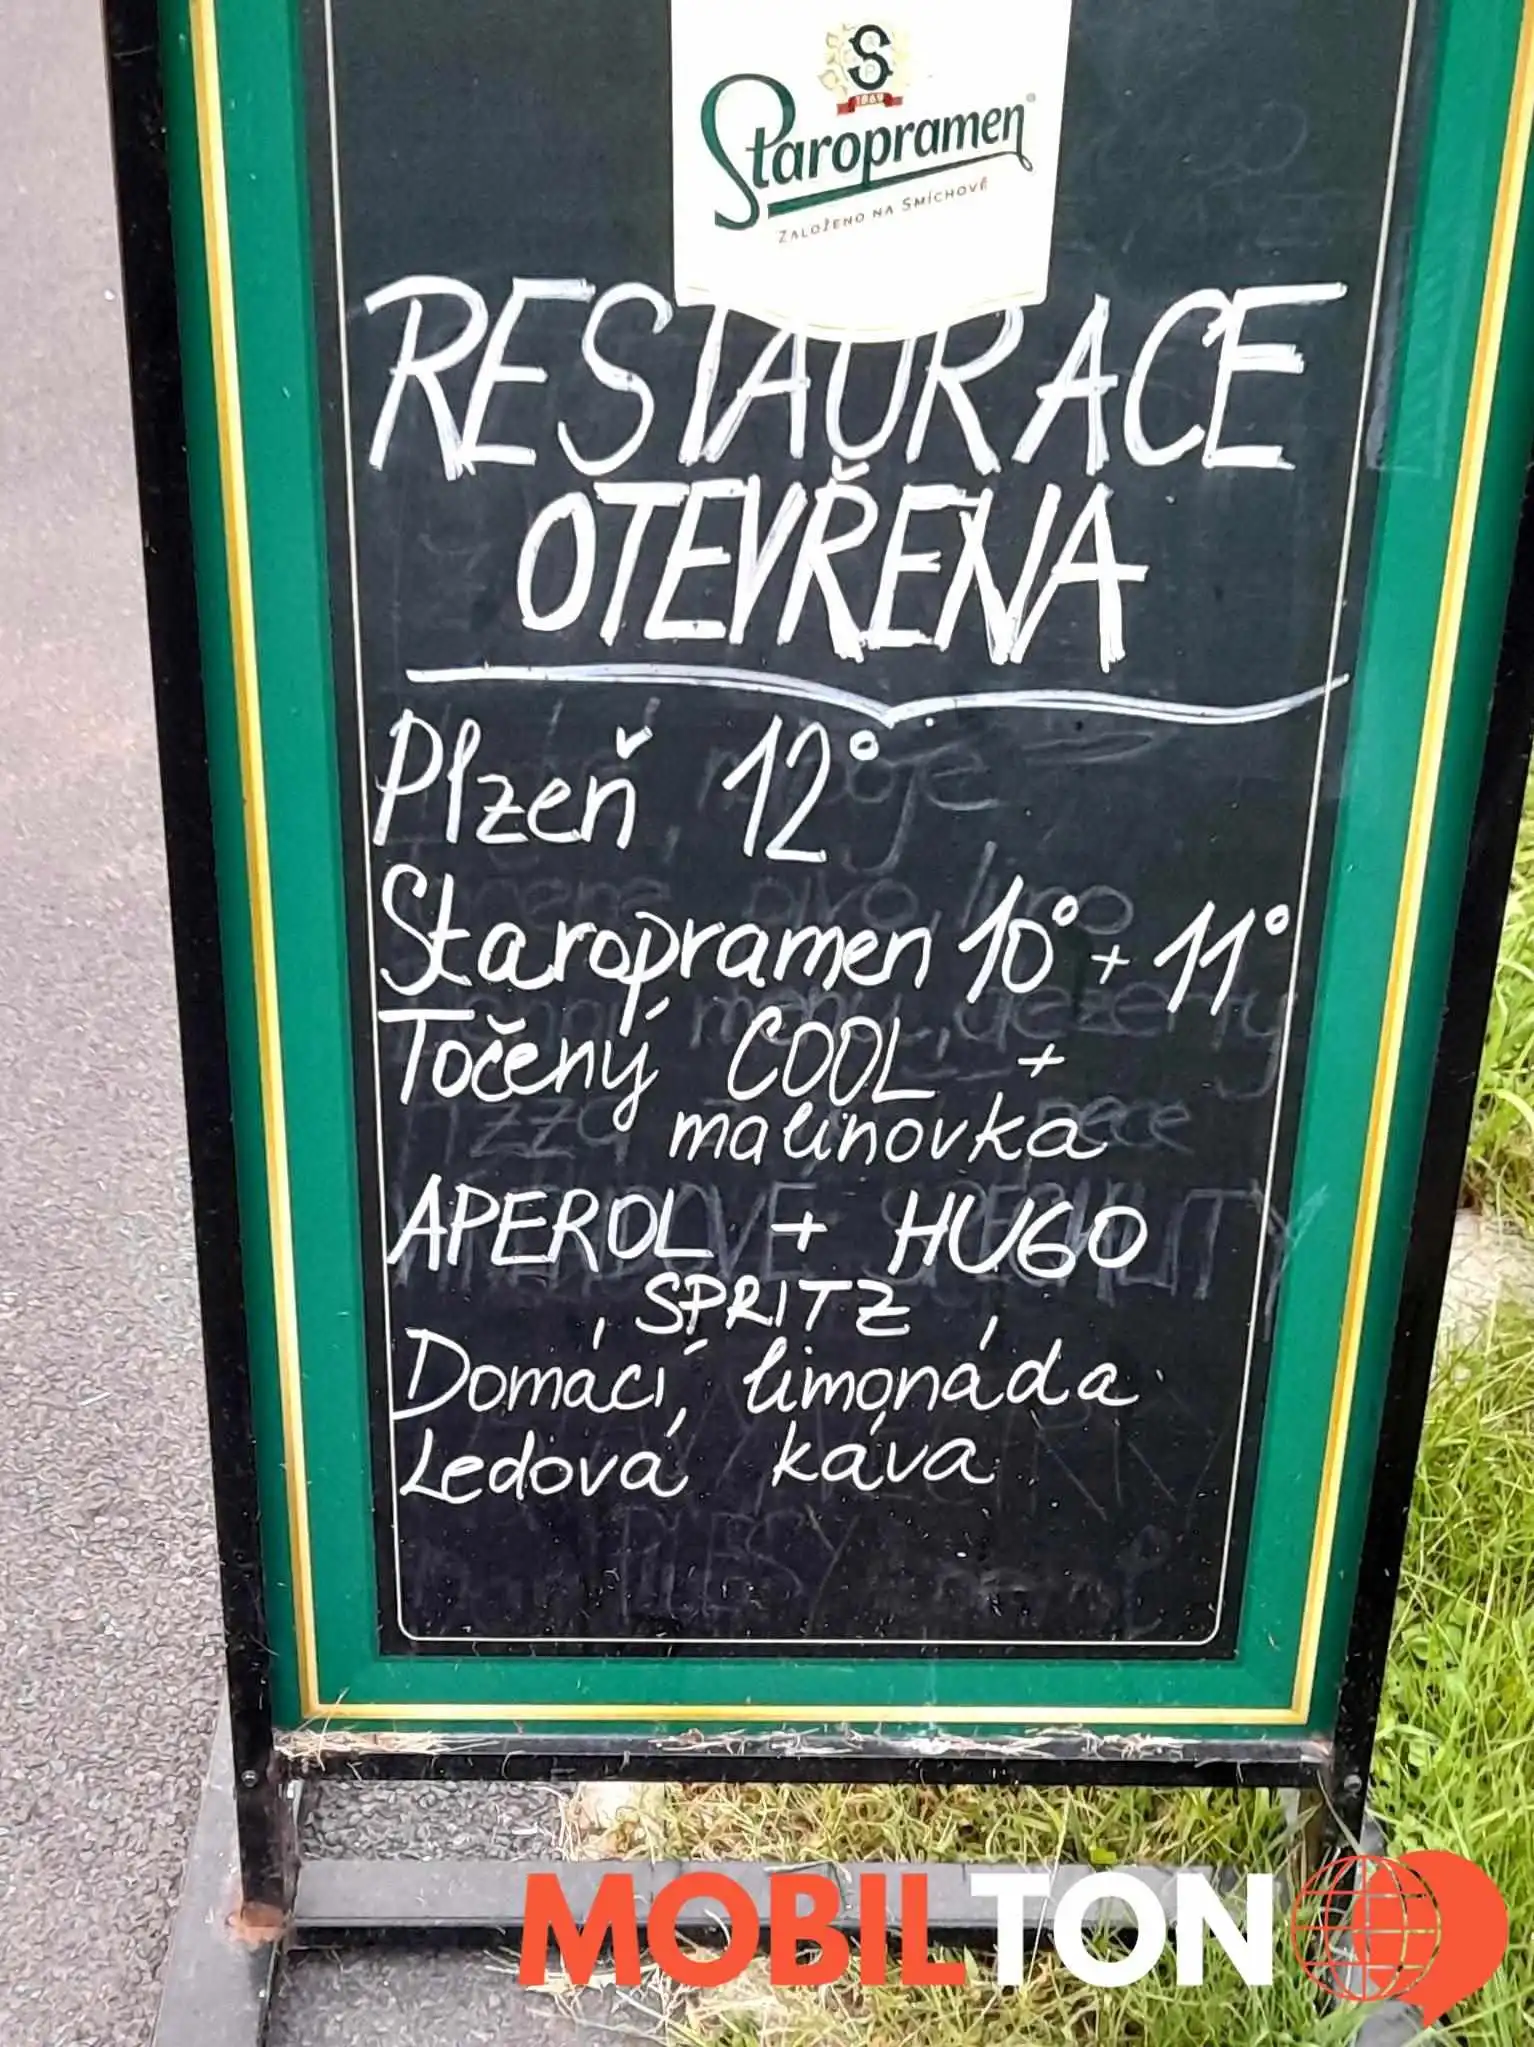 S
1869
Staropramen
ZALOŽENO NA SMÍCHOVĚ
RESTAURACE
OTEVŘENA
Plzeň 12°
Staropramen 10° + 11°
Točený COOL +
malinovka
APEROL + HUGO
SPRITZ
Domácí limonáda
Ledová káva
MOBILTON